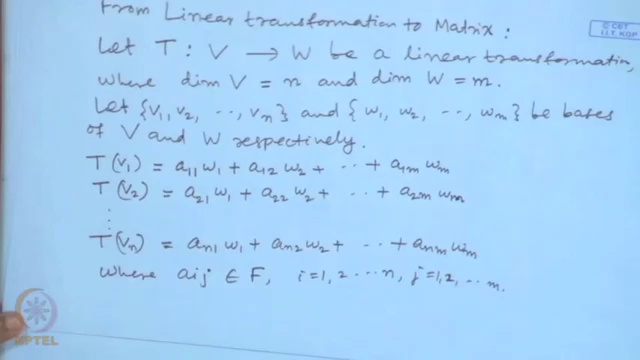 From Linear transformation to Matrix :
© CET
I.I.T. KGP
Let T : V → W be a linear transformation,
where dim V = n and dim W = m.
Let {v₁, v₂, ··, vₙ} and {w₁, w₂, ··, wₘ} be bases
of V and W respectively.
T(v₁) = a₁₁ w₁ + a₁₂ w₂ + ·· + a₁ₘ wₘ
T(v₂) = a₂₁ w₁ + a₂₂ w₂ + ·· + a₂ₘ wₘ
⋮
T(vₙ) = aₙ₁ w₁ + aₙ₂ w₂ + ·· + aₙₘ wₘ
where aij ∈ F, i=1, 2 ··· n, j=1, 2, ·· m.
NPTEL